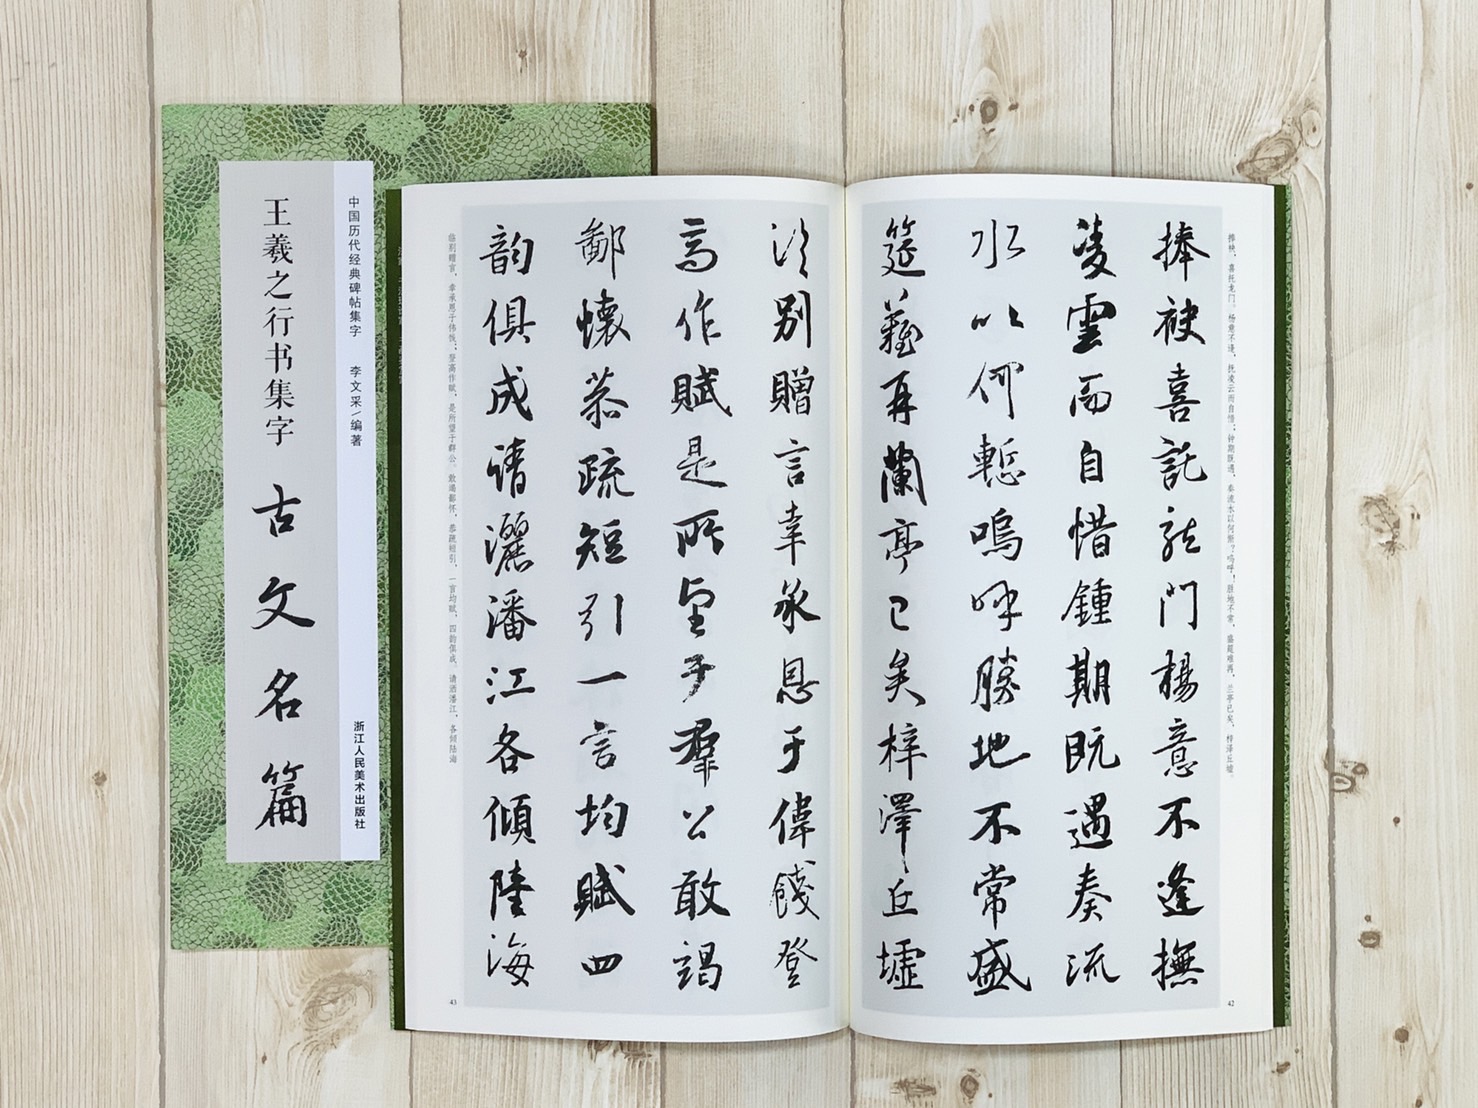 王羲之行书集字
古文名篇
中国历代经典碑帖集字 李文采/编著
浙江人民美术出版社
捧袂，喜托龙门。杨意不逢，抚凌云而自惜；钟期既遇，奏流水以何惭？呜呼！胜地不常，盛筵难再，兰亭已矣，梓泽丘墟。
捧袂喜託龍門楊意不逢撫
凌雲而自惜鍾期既遇奏流
水以何慙嗚呼勝地不常盛
筵難再蘭亭已矣梓澤丘墟
42
臨別贈言幸承恩于偉餞登
高作賦是所望于羣公敢竭
鄙懷恭疏短引一言均賦四
韵俱成請灑潘江各傾陸海
临别赠言，幸承恩于伟饯；登高作赋，是所望于群公。敢竭鄙怀，恭疏短引，一言均赋，四韵俱成。请洒潘江，各倾陆海
43